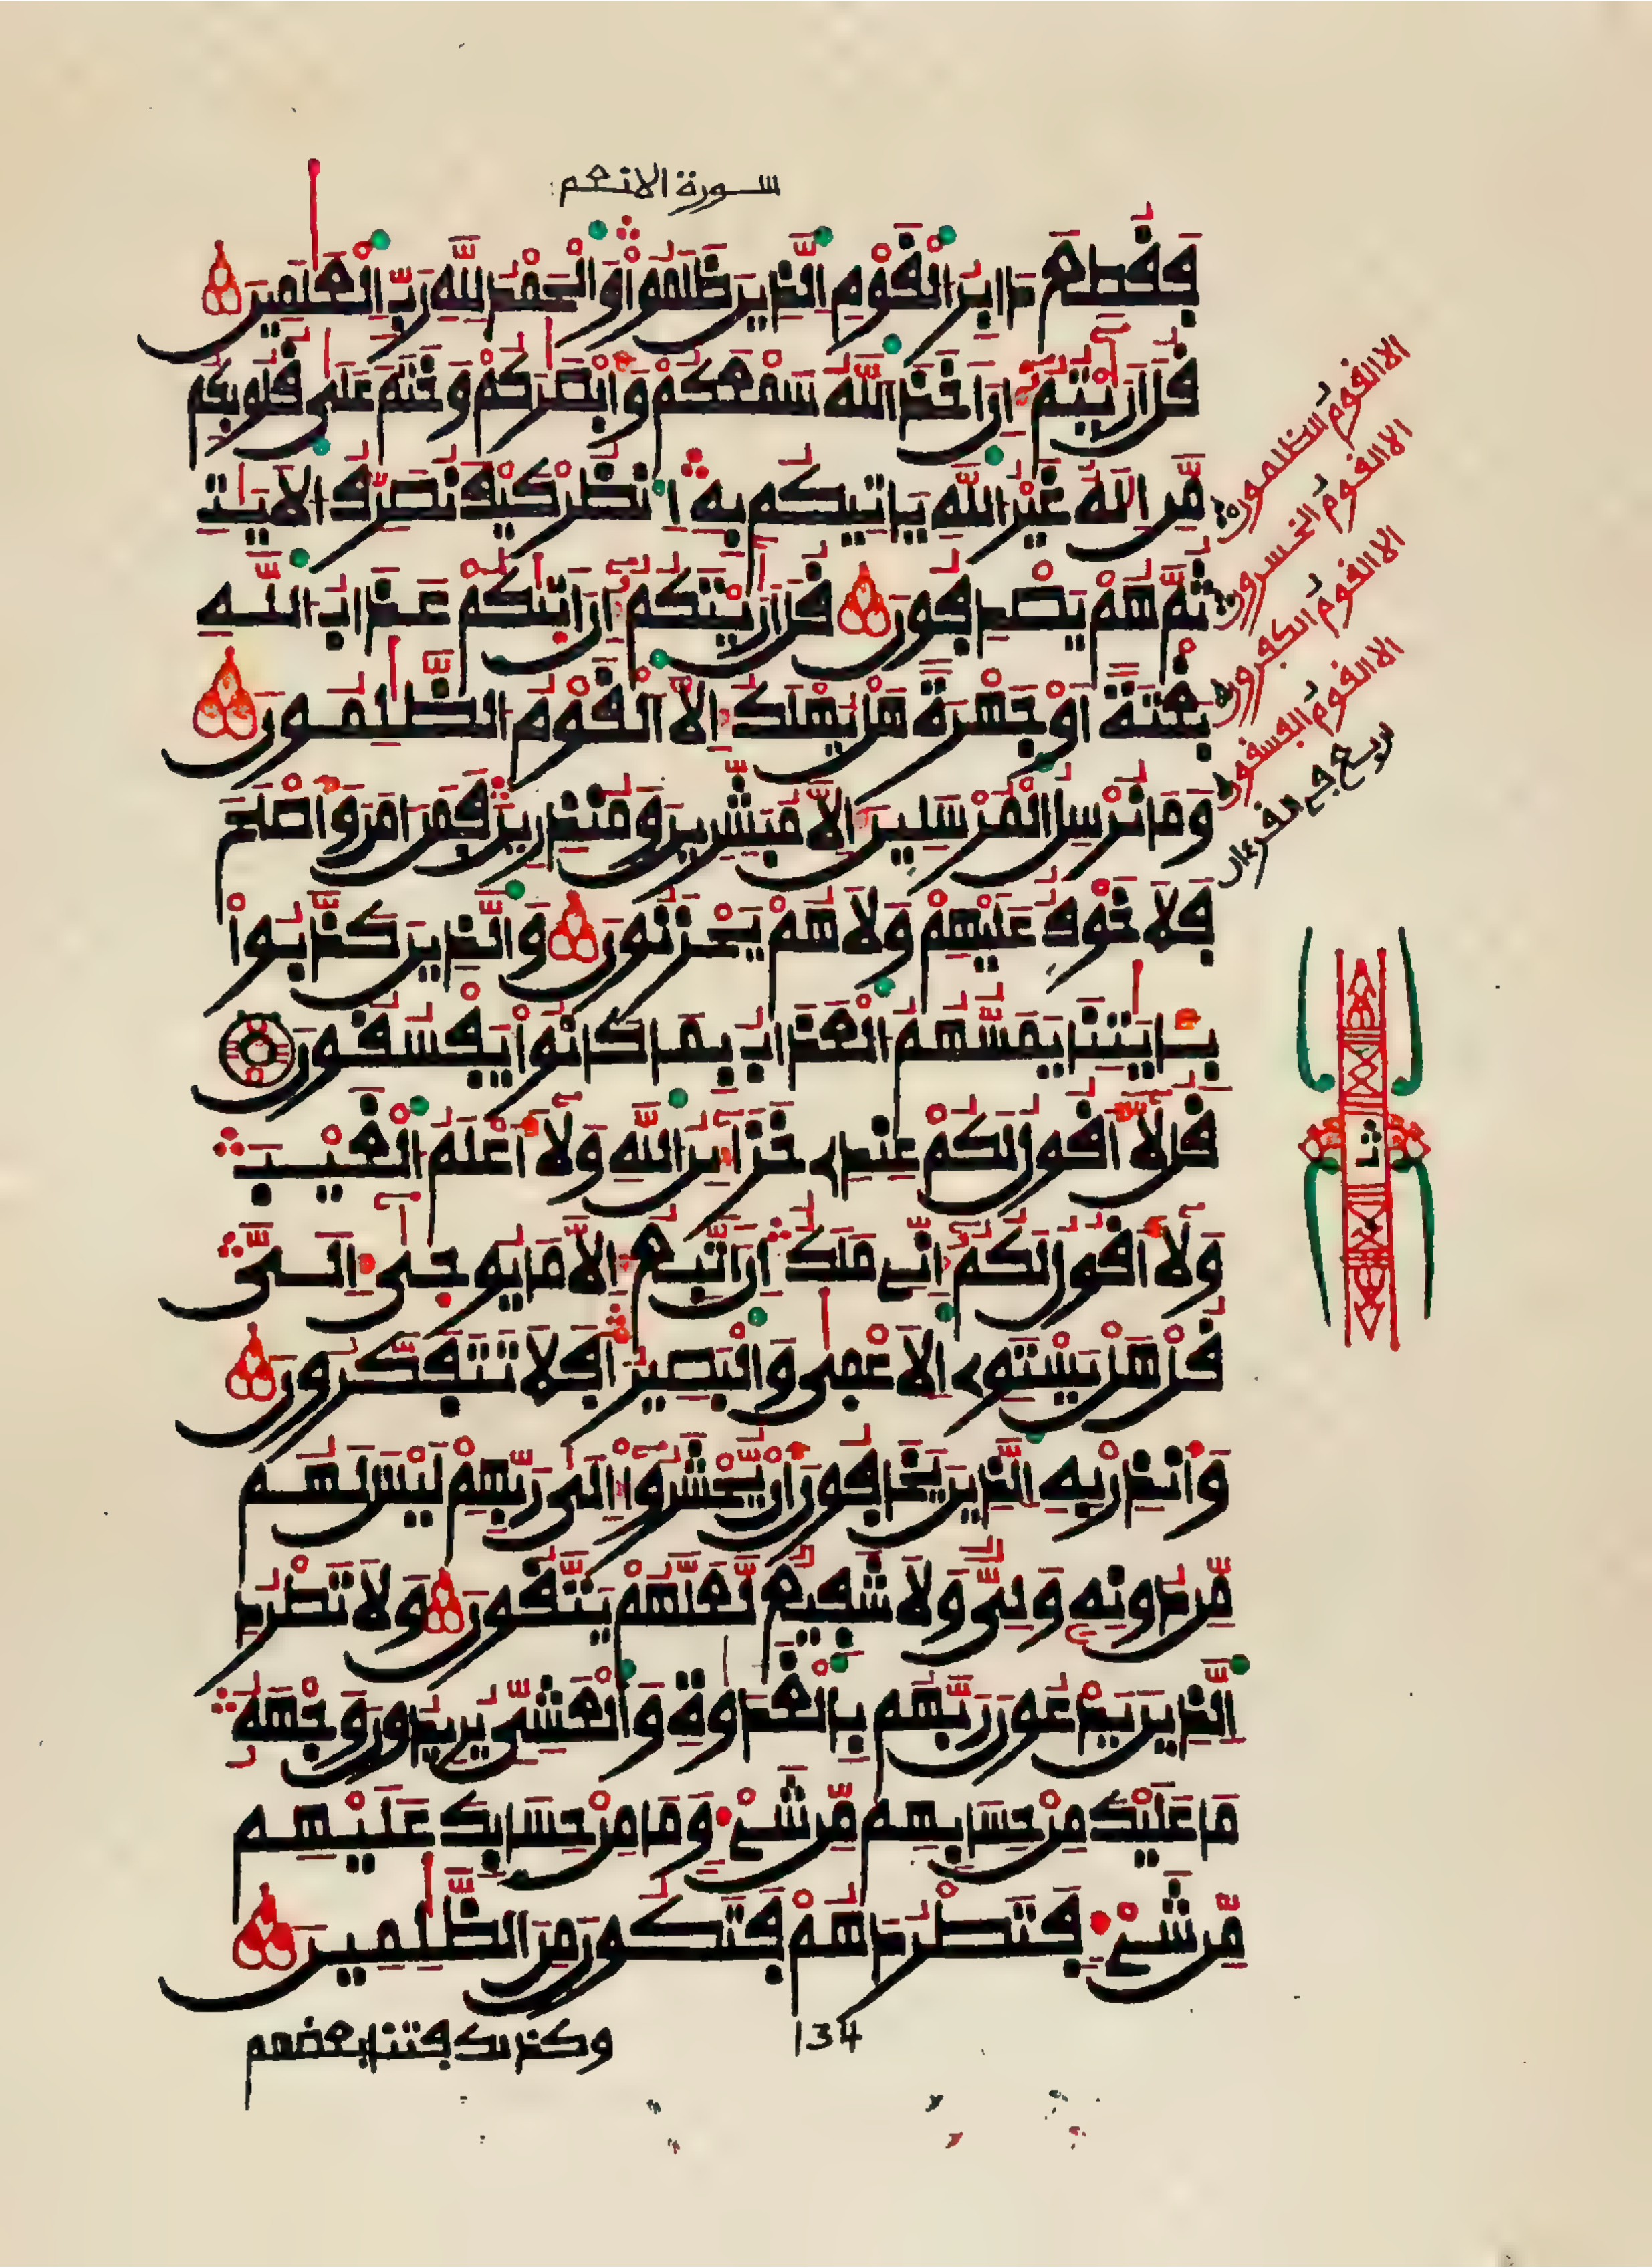 سورة الانعم:
فَقُطِعَ دَابِرُ الْقَوْمِ الَّذِينَ ظَلَمُواْ وَالْحَمْدُ لِلَّهِ رَبِّ الْعَٰلَمِينَ
قُلَ اَرَٰيْتُمُۥٓ إِنَ اَخَذَ اللَّهُ سَمْعَكُمْ وَأَبْصَٰرَكُمْ وَخَتَمَ عَلَىٰ قُلُوبِكُم
مَّنِ اِلَٰهٌ غَيْرُ اللَّهِ يَاتِيكُم بِهِ اِ۟نظُرْ كَيْفَ نُصَرِّفُ الَايَٰتِ
ثُمَّ هُمْ يَصْدِفُونَ قُلَ اَرَٰيْتَكُمُۥٓ إِنَ اَتٰىكُمْ عَذَابُ اللَّهِ
بَغْتَةً اَوْ جَهْرَةً هَلْ يُهْلَكُ إِلَّا الْقَوْمُ الظَّٰلِمُونَ
وَمَا نُرْسِلُ الْمُرْسَلِينَ إِلَّا مُبَشِّرِينَ وَمُنذِرِينَ فَمَنَ اٰمَنَ وَأَصْلَحَ
فَلَا خَوْفٌ عَلَيْهِمْ وَلَا هُمْ يَحْزَنُونَ وَالَّذِينَ كَذَّبُواْ
بِـَٔايَٰتِنَا يَمَسُّهُمُ الْعَذَابُ بِمَا كَانُواْ يَفْسُقُونَ
قُل لَّآ أَقُولُ لَكُمْ عِندِے خَزَآئِنُ اللَّهِ وَلَآ أَعْلَمُ الْغَيْبَ
وَلَآ أَقُولُ لَكُمُۥٓ إِنِّے مَلَكٌ اِنَ اَتَّبِعُ إِلَّا مَا يُوحَىٰٓ إِلَىَّ
قُلْ هَلْ يَسْتَوِے الَاعْمَىٰ وَالْبَصِيرُ أَفَلَا تَتَفَكَّرُونَ
وَأَنذِرْ بِهِ الَّذِينَ يَخَافُونَ أَنْ يُّحْشَرُوٓاْ إِلَىٰ رَبِّهِمْ لَيْسَ لَهُم
مِّن دُونِهِۦ وَلِىٌّ وَلَا شَفِيعٌ لَّعَلَّهُمْ يَتَّقُونَ وَلَا تَطْرُدِ
الَّذِينَ يَدْعُونَ رَبَّهُم بِالْغَدَوٰةِ وَالْعَشِىِّ يُرِيدُونَ وَجْهَهُۥ
مَا عَلَيْكَ مِنْ حِسَابِهِم مِّن شَےْءٍ وَمَا مِنْ حِسَابِكَ عَلَيْهِم
مِّن شَےْءٍ فَتَطْرُدَهُمْ فَتَكُونَ مِنَ الظَّٰلِمِينَ
134
وكذلك فتنا بعضهم
الا القومُ الظلمون
الا القومُ الخسرون
الا القومُ الكفرون
الا القومُ الفسقون
ربع حزب القرءان